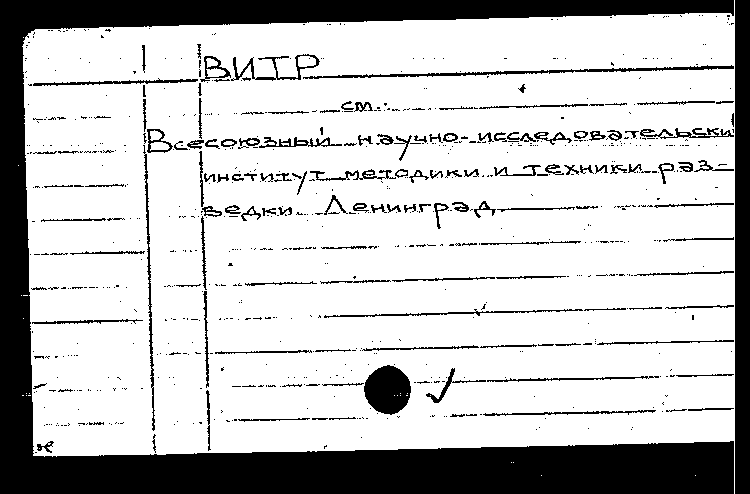 ВИТР
см.:
Всесоюзный научно-исследовательский
институт методики и техники раз-
ведки. Ленинград.